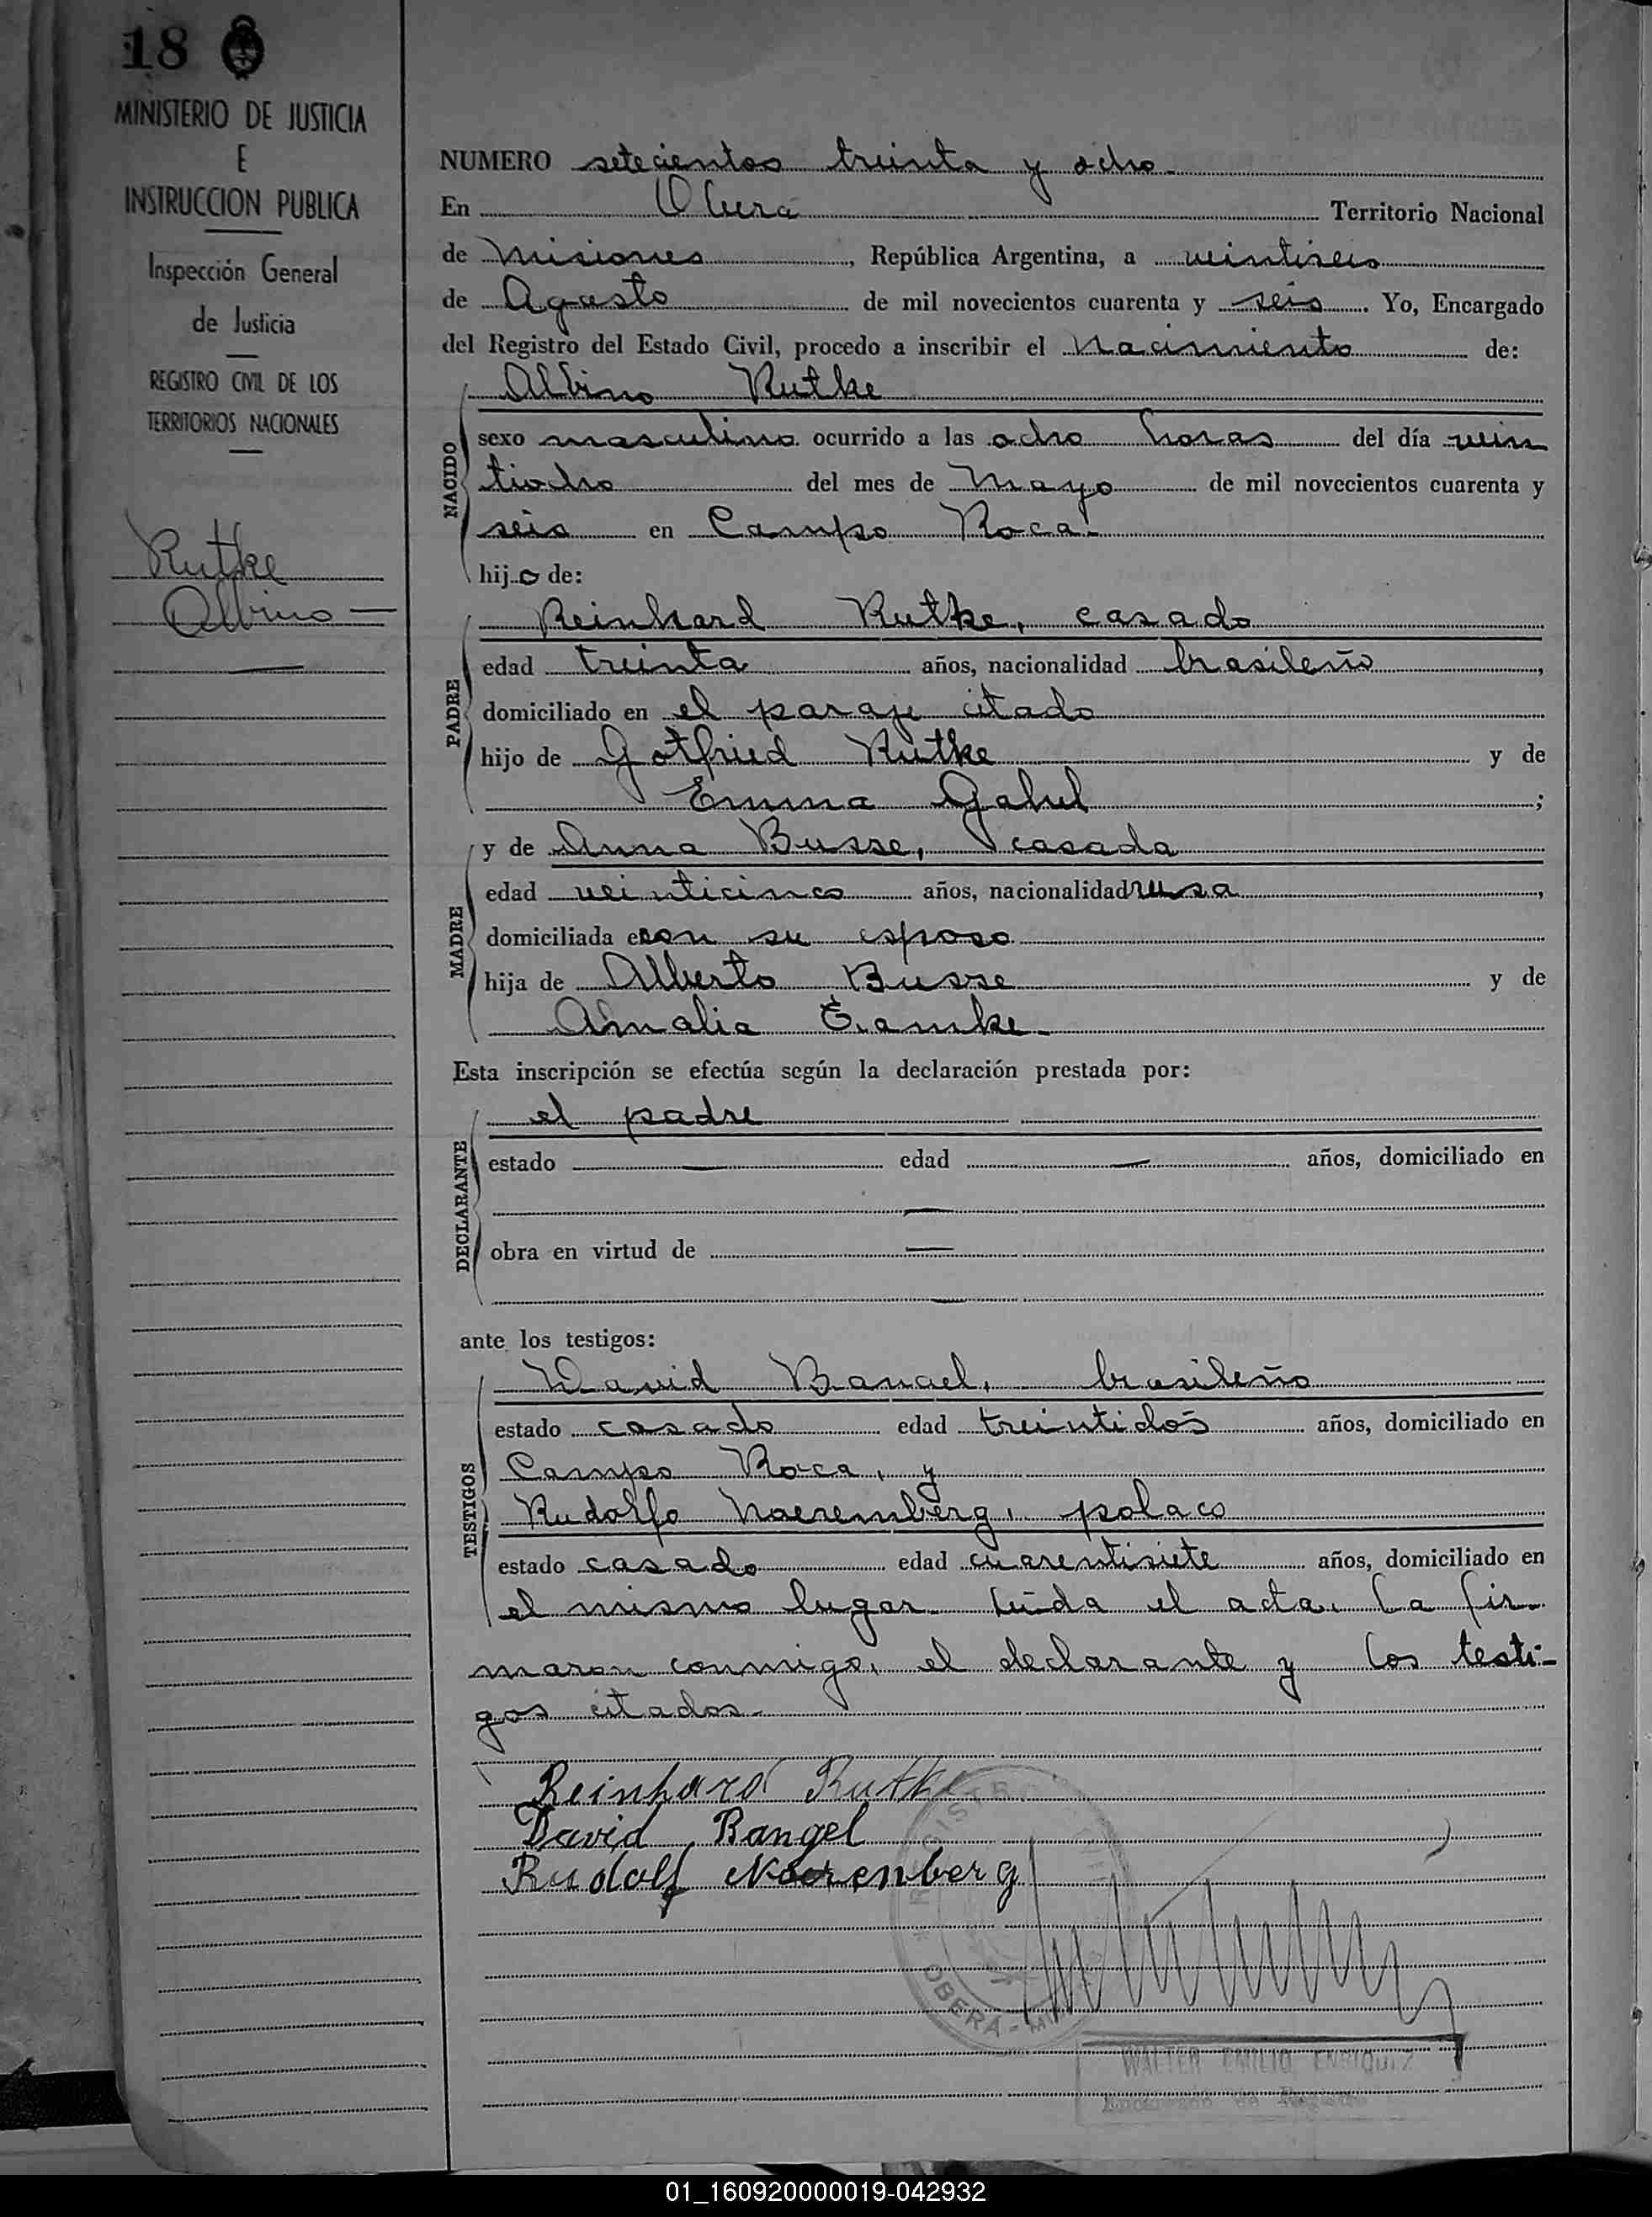 18
MINISTERIO DE JUSTICIA
E
INSTRUCCION PUBLICA
Inspección General
de Justicia
REGISTRO CIVIL DE LOS
TERRITORIOS NACIONALES
Rutke
Albino
NUMERO setecientos treinta y ocho
En Oberá Territorio Nacional
de Misiones, República Argentina, a veintiseis
de Agosto de mil novecientos cuarenta y seis. Yo, Encargado
del Registro del Estado Civil, procedo a inscribir el nacimiento de:
Albino Rutke
NACIDO
sexo masculino ocurrido a las ocho horas del día vein
tiocho del mes de Mayo de mil novecientos cuarenta y
seis en Campo Roca.
hijo de:
Reinhard Rutke, casado
PADRE
edad treinta años, nacionalidad brasileño,
domiciliado en el paraje citado
hijo de Gotfried Rutke y de
Emma ;
y de Anna Busse, casada
MADRE
edad veinticinco años, nacionalidad rusa,
domiciliada con su esposo
hija de Alberto Busse y de
Amalia
Esta inscripción se efectúa según la declaración prestada por:
el padre
DECLARANTE
estado — edad — años, domiciliado en
—
obra en virtud de —
—
ante los testigos:
David Bangel, brasileño
TESTIGOS
estado casado edad treintidós años, domiciliado en
Campo Roca, y
Rudolfo Noeremberg, polaco
estado casado edad cuarentisiete años, domiciliado en
el mismo lugar. Leida el acta, la fir-
maron conmigo, el declarante y los testi-
gos citados.-
Reinhard Rutke
David Bangel
Rudolf Noerenberg
OBERÁ - 
WALTER EMILIO ENRIQUEZ
Encargado de Registro
01_160920000019-042932